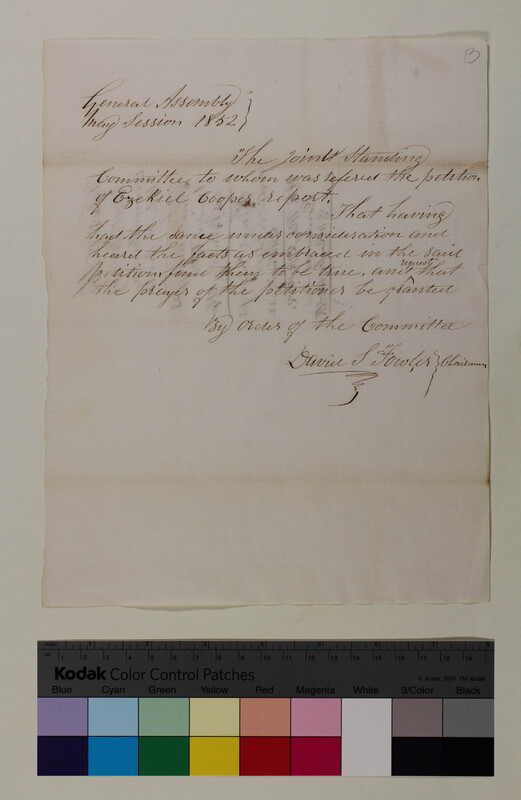 B
General Assembly }
May Session 1852 }
The Joint Standing
Committee to whom was refered the petition
of Ezekiel Cooper report.
That having
had the same under consideration and
heard the facts as embraced in the said
petition find them to be true, and request that
the prayer of the petitioner be granted
By order of the Committee
David S Fowler } Chairman
Kodak Color Control Patches
© Kodak, 2007 TM: Kodak
Blue Cyan Green Yellow Red Magenta White 3/Color Black